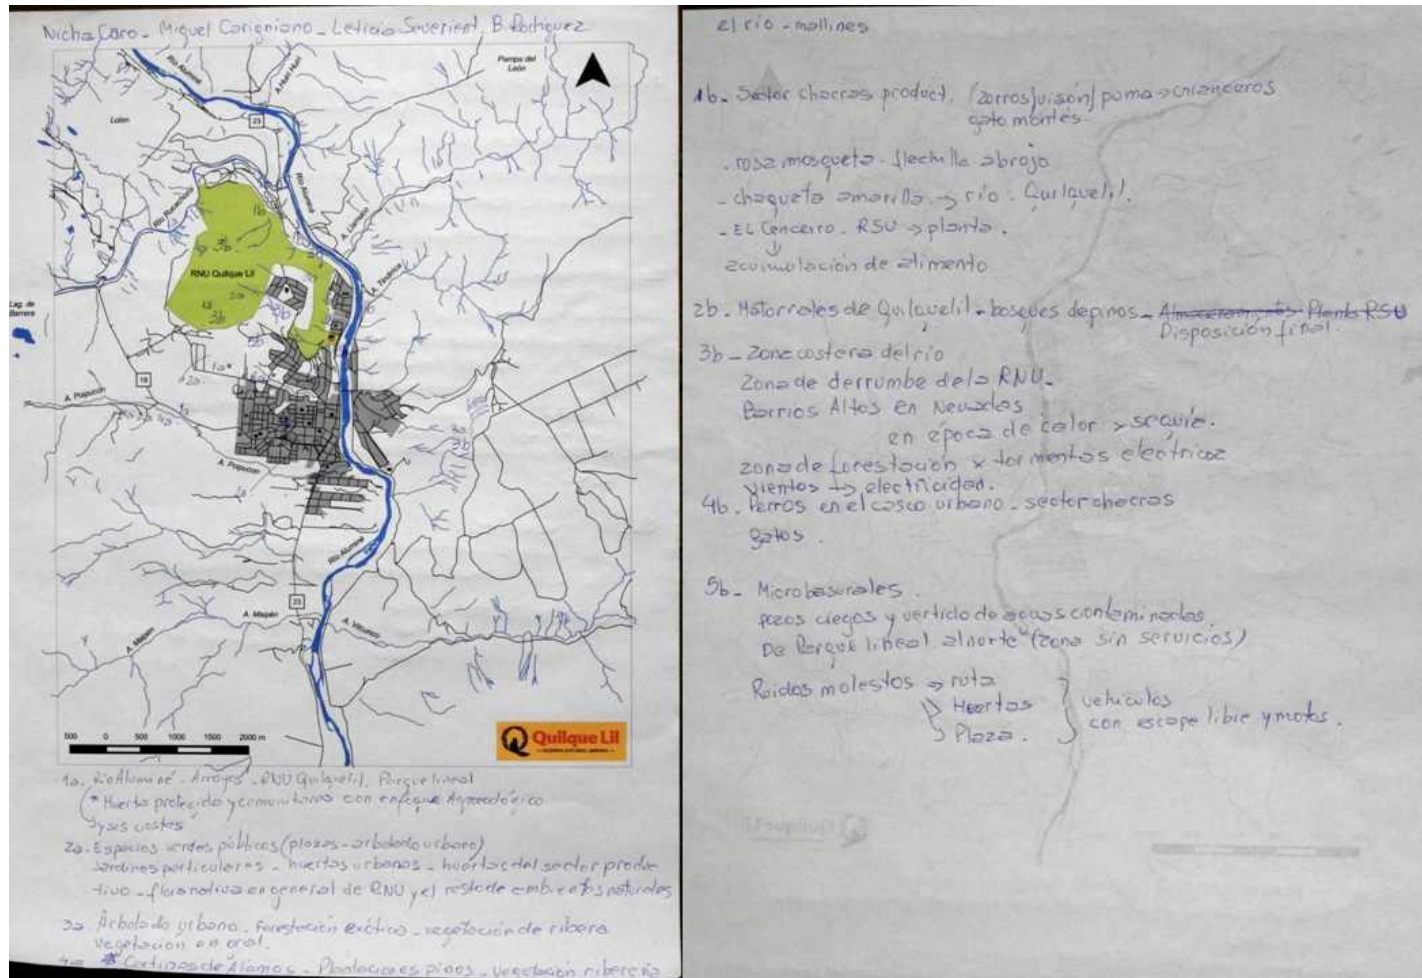 Nicha Caro - Miguel Carigniano - Leticia Severient. B. Rodriguez
Río Aluminé
A. Huri Huri
Pampa del
León
23
Lalen
Río Aluminé
1b
3b
RNU Quilque Lil
A. Tindinco
Lag. de
Barrera
2a
3b
5b
1a*
2a
18
A. Poipucón
4a
3a
3b
A. Poipucón
Río Aluminé
23
A. Maipén
A. Maipén
500 0 500 1000 1500 2000 m
Quilque Lil
1a. Río Aluminé - Arroyos - RNU Quilquelil. Parque lineal
* Huerta protegida y comunitaria con enfoque Agroecológico
y sus costas
2a. Espacios verdes públicos (plazas - arbolado urbano)
Jardines particulares - huertas urbanas - huertas del sector produc
tivo - flora nativa en general de RNU y el resto de ambientes naturales
3a Arbolado urbano. Forestación exótica - vegetación de ribera
vegetación en gral.
4a * Cortinas de álamos - Plantaciones pinos - vegetación ribereña
el río - mallines
1b - Sector chacras product. (zorros/visón/puma → crianceros
gato montés
. rosa mosqueta - flechilla abrojo
- chaqueta amarilla → río - Quilquelil.
- EL Cencerro - RSU → planta.
acumulación de alimento
2b. Matorrales de Quilquelil - bosques de pinos - Planta RSU
Disposición final.
3b - Zona costera del río
Zona de derrumbe de la RNU -
Barrios Altos en Nevadas
en época de calor y sequía.
zona de forestación x tormentas eléctricas
vientos → electricidad.
4b. Perros en el casco urbano - sector chacras
gatos.
5b - Microbasurales.
pozos ciegos y vertido de aguas contaminadas.
De Parque lineal al norte (zona sin servicios)
Ruidos molestos → ruta
Huertas
Plaza.
vehículos
con escape libre y motos.